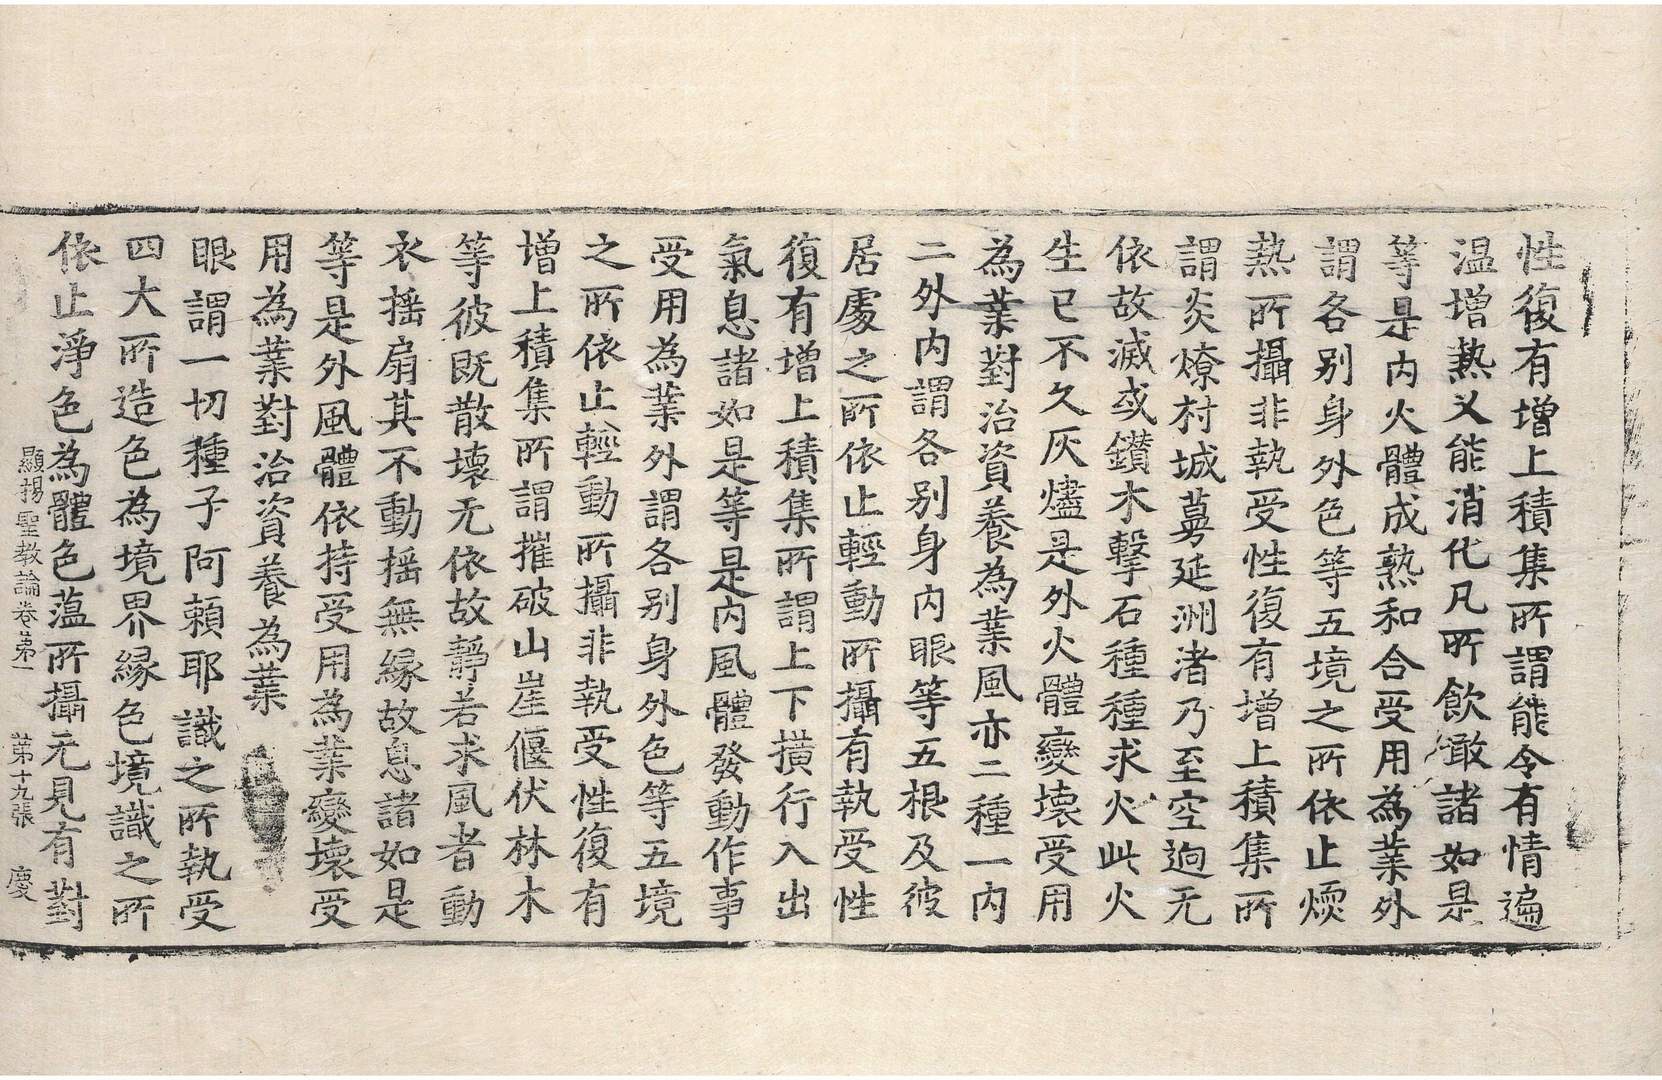 性復有增上積集所謂能令有情遍
温增熱又能消化凡所飲噉諸如是
等是內火體成熟和合受用為業外
謂各別身外色等五境之所依止煗
熱所攝非執受性復有增上積集所
謂炎燎村城蔓延洲渚乃至空逈无
依故滅或鑽木擊石種種求火此火
生已不久灰燼是外火體變壞受用
為業對治資養為業風亦二種一內
二外內謂各別身內眼等五根及彼
居處之所依止輕動所攝有執受性
復有增上積集所謂上下橫行入出
氣息諸如是等是內風體發動作事
受用為業外謂各別身外色等五境
之所依止輕動所攝非執受性復有
增上積集所謂摧破山崖偃伏林木
等彼既散壞无依故靜若求風者動
衣搖扇其不動搖無緣故息諸如是
等是外風體依持受用為業變壞受
用為業對治資養為業
眼謂一切種子阿賴耶識之所執受
四大所造色為境界緣色境識之所
依止淨色為體色蘊所攝无見有對
顯揚聖教論卷第一 第十九張 慶